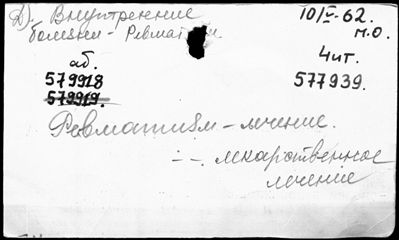 Д). Внутренние
болезни - Ревмат
10/V-62.
М.О.
аб.
579918
579919.
Чит.
577939.
Ревматизм - лечение.
- - . лекарственное
лечение